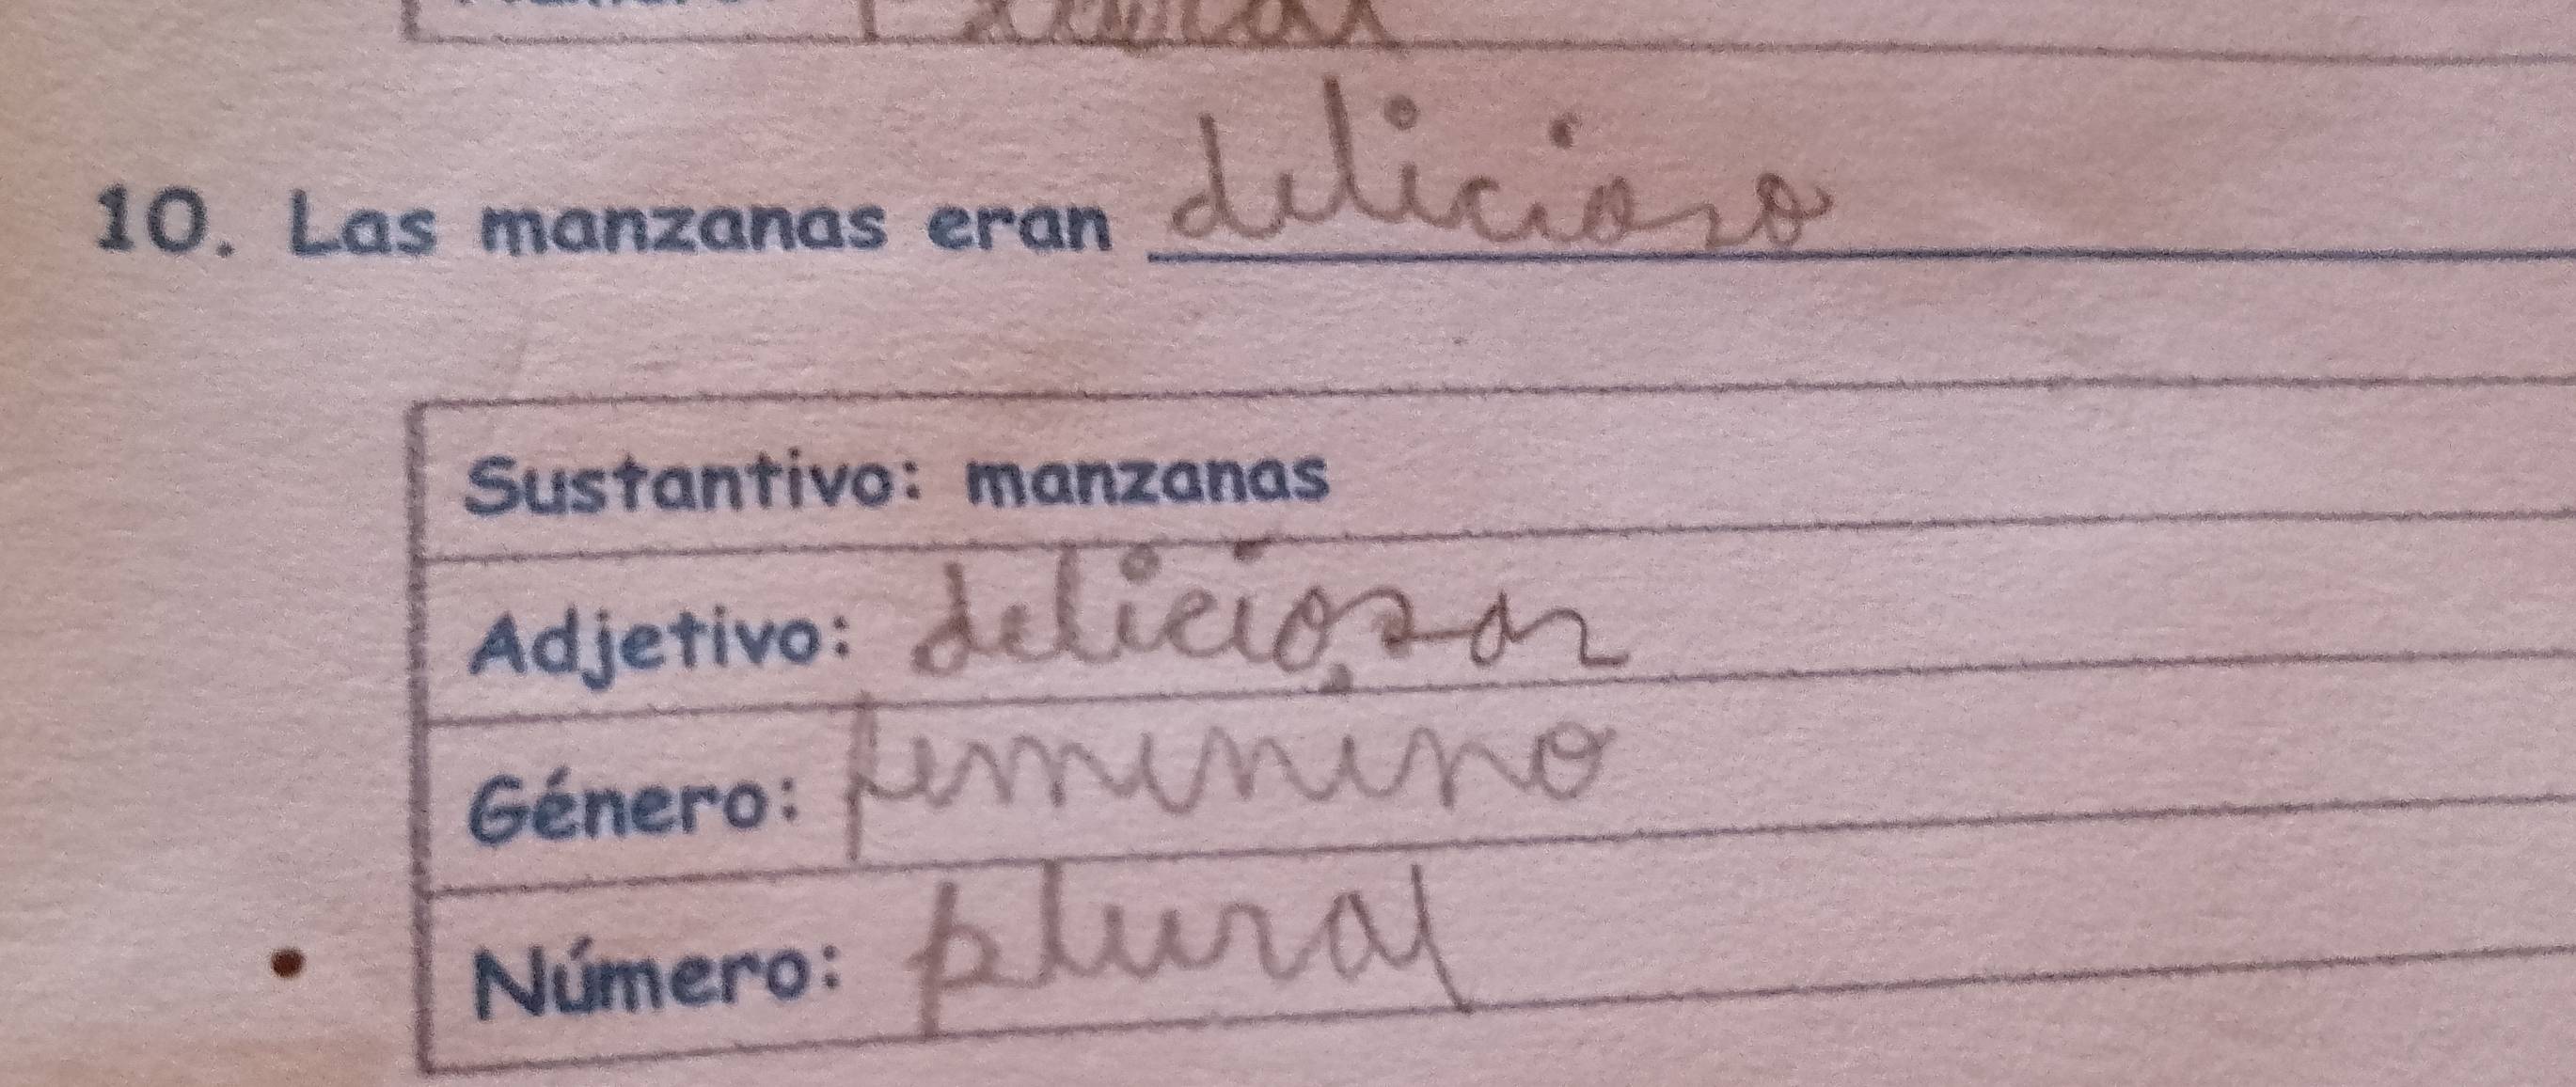 10. Las manzanas eran delicioso
Sustantivo: manzanas
Adjetivo: deliciosas
Género: femenino
Número: plural